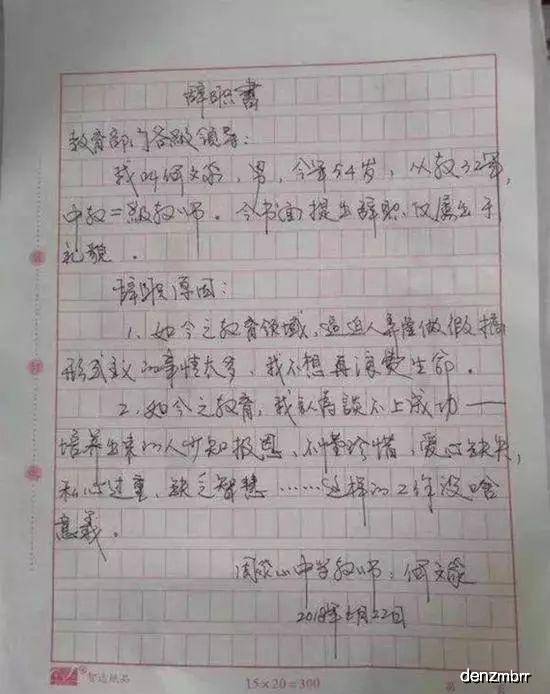 辞职书
教育部门各级领导：
我叫何文,男,今年54岁,从教32年,
中教二级教师。今书面提出辞职,仅属出于
礼貌。
辞职原因：
1、如今之教育领域,逼迫人弄虚做假搞
形式主义的事情太多,我不想再浪费生命。
2、如今之教育,我认为谈不上成功——
培养出来的人少知报恩、不懂珍惜,爱心缺失,
私心过重,缺乏智慧……这样的工作没啥
意义。
山中学教师：何文
2018年 月22日
智达纸品
15×20=300
第 页
denzmbrr